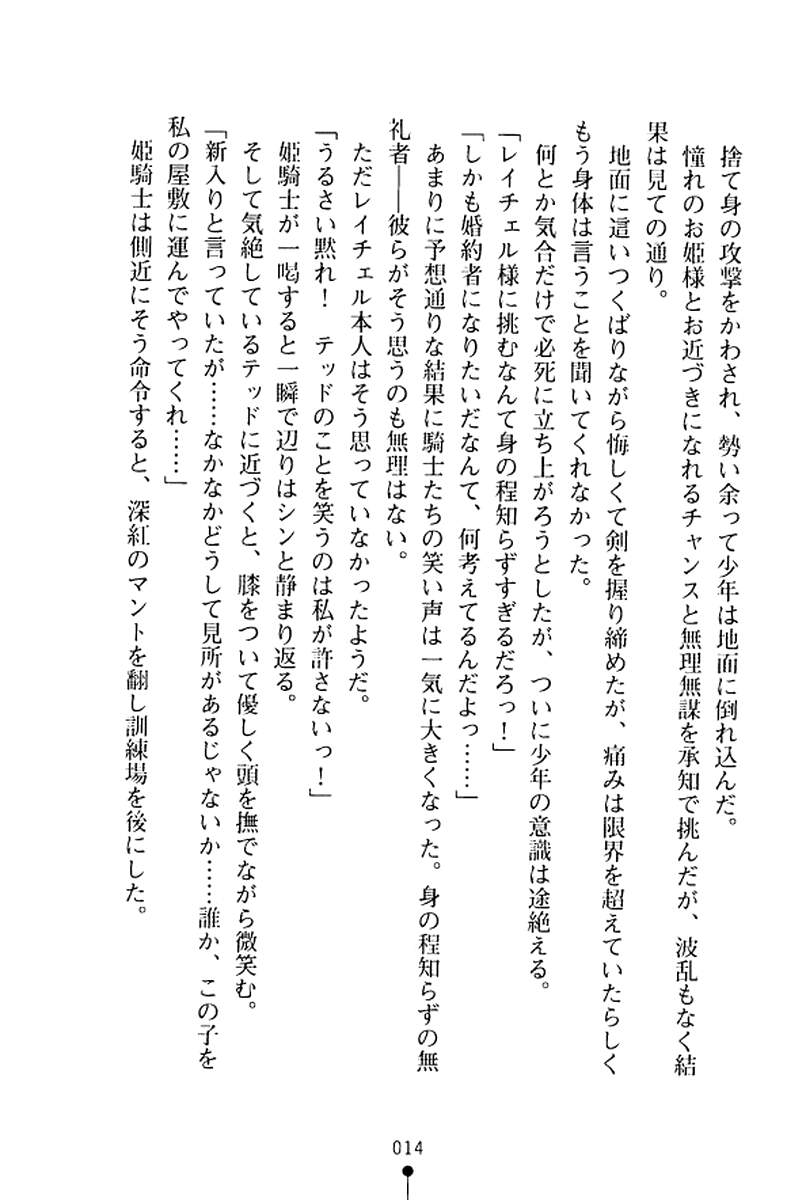 捨て身の攻撃をかわされ、勢い余って少年は地面に倒れ込んだ。
憧れのお姫様とお近づきになれるチャンスと無理無謀を承知で挑んだが、波乱もなく結
果は見ての通り。
地面に這いつくばりながら悔しくて剣を握り締めたが、痛みは限界を超えていたらしく
もう身体は言うことを聞いてくれなかった。
何とか気合だけで必死に立ち上がろうとしたが、ついに少年の意識は途絶える。
「レイチェル様に挑むなんて身の程知らずすぎるだろっ！」
「しかも婚約者になりたいだなんて、何考えてるんだよっ……」
あまりに予想通りな結果に騎士たちの笑い声は一気に大きくなった。身の程知らずの無
礼者――彼らがそう思うのも無理はない。
ただレイチェル本人はそう思っていなかったようだ。
「うるさい黙れ！　テッドのことを笑うのは私が許さないっ！」
姫騎士が一喝すると一瞬で辺りはシンと静まり返る。
そして気絶しているテッドに近づくと、膝をついて優しく頭を撫でながら微笑む。
「新入りと言っていたが……なかなかどうして見所があるじゃないか……誰か、この子を
私の屋敷に運んでやってくれ……」
姫騎士は側近にそう命令すると、深紅のマントを翻し訓練場を後にした。
014